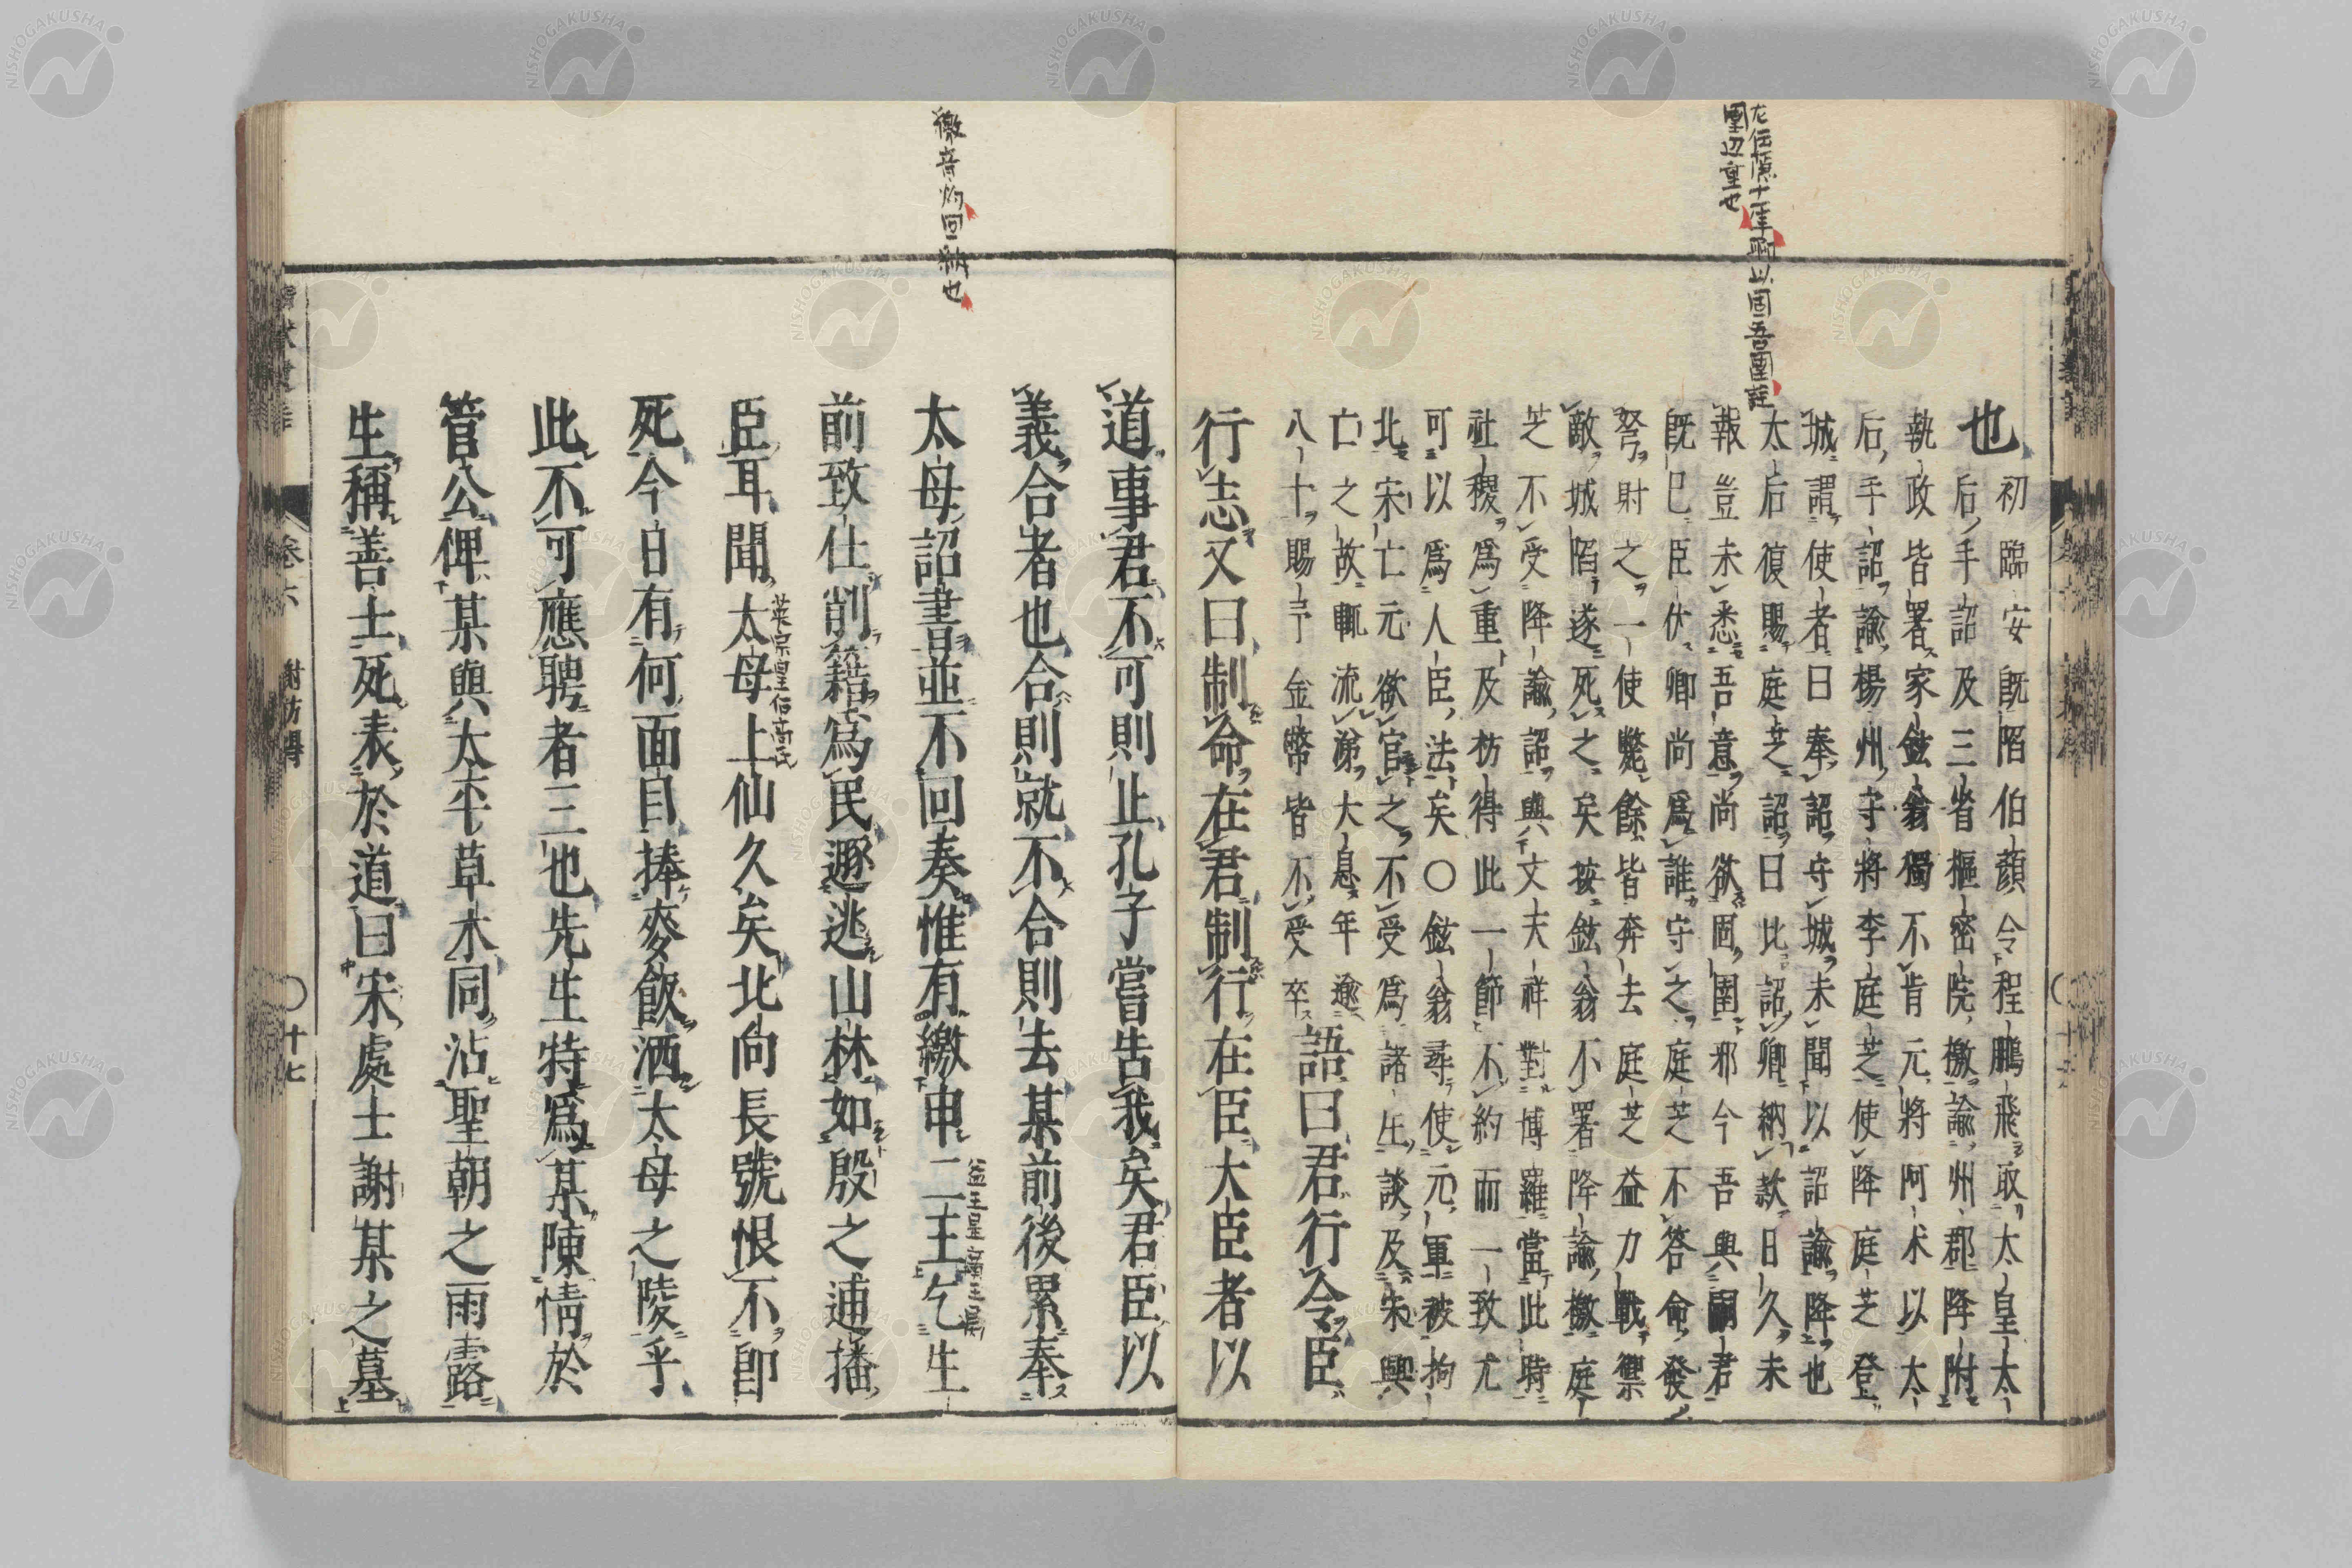 也
初臨安既陷伯顏令程鵬飛取太皇太
后手詔及三省樞密院檄諭州郡降附
執政皆署家鉉翁獨不肯元將阿朮以太
后手詔諭楊州守將李庭芝使降庭芝登
城謂使者曰奉詔守城未聞以詔諭降也
太后復賜庭芝詔曰比詔卿納款日久未
報豈未悉吾意尚欲固圉邪今吾與嗣君
既已臣伏卿尚爲誰守之庭芝不答命發
弩射之一使斃餘皆奔去庭芝益力戰禦
敵城陷遂死之矣按鉉翁不署降諭檄庭
芝不受降諭詔與文天祥對博羅當此時
社稷爲重及枋得此一節不約而一致尤
可以爲人臣法矣○鉉翁尋使元軍被拘
北宋亡元欲官之不受爲諸生談及宋興
亡之故輒流涕大息年逾
八十賜予金幣皆不受卒
語曰君行令臣
行志又曰制命在君制行在臣大臣者以
左傳隱十一年聊以固吾圉註
圉辺垂也
道事君不可則止孔子嘗告我矣君臣以
義合者也合則就不合則去某前後累奉
太母詔書並不回奏惟有繳申二王乞生
益王是廣王昺
前致仕削籍爲民遯逃山林如殷之逋播
臣耳聞太母上仙久矣北向長號恨不即
英宗皇后高氏
死今日有何面目捧麥飮洒太母之陵乎
此不可應聘者三也先生特爲某陳情於
管公俾某與太平草木同沾聖朝之雨露
生稱善士死表於道曰宋處士謝某之墓
繳音灼回納也
卷六
謝枋得
十七